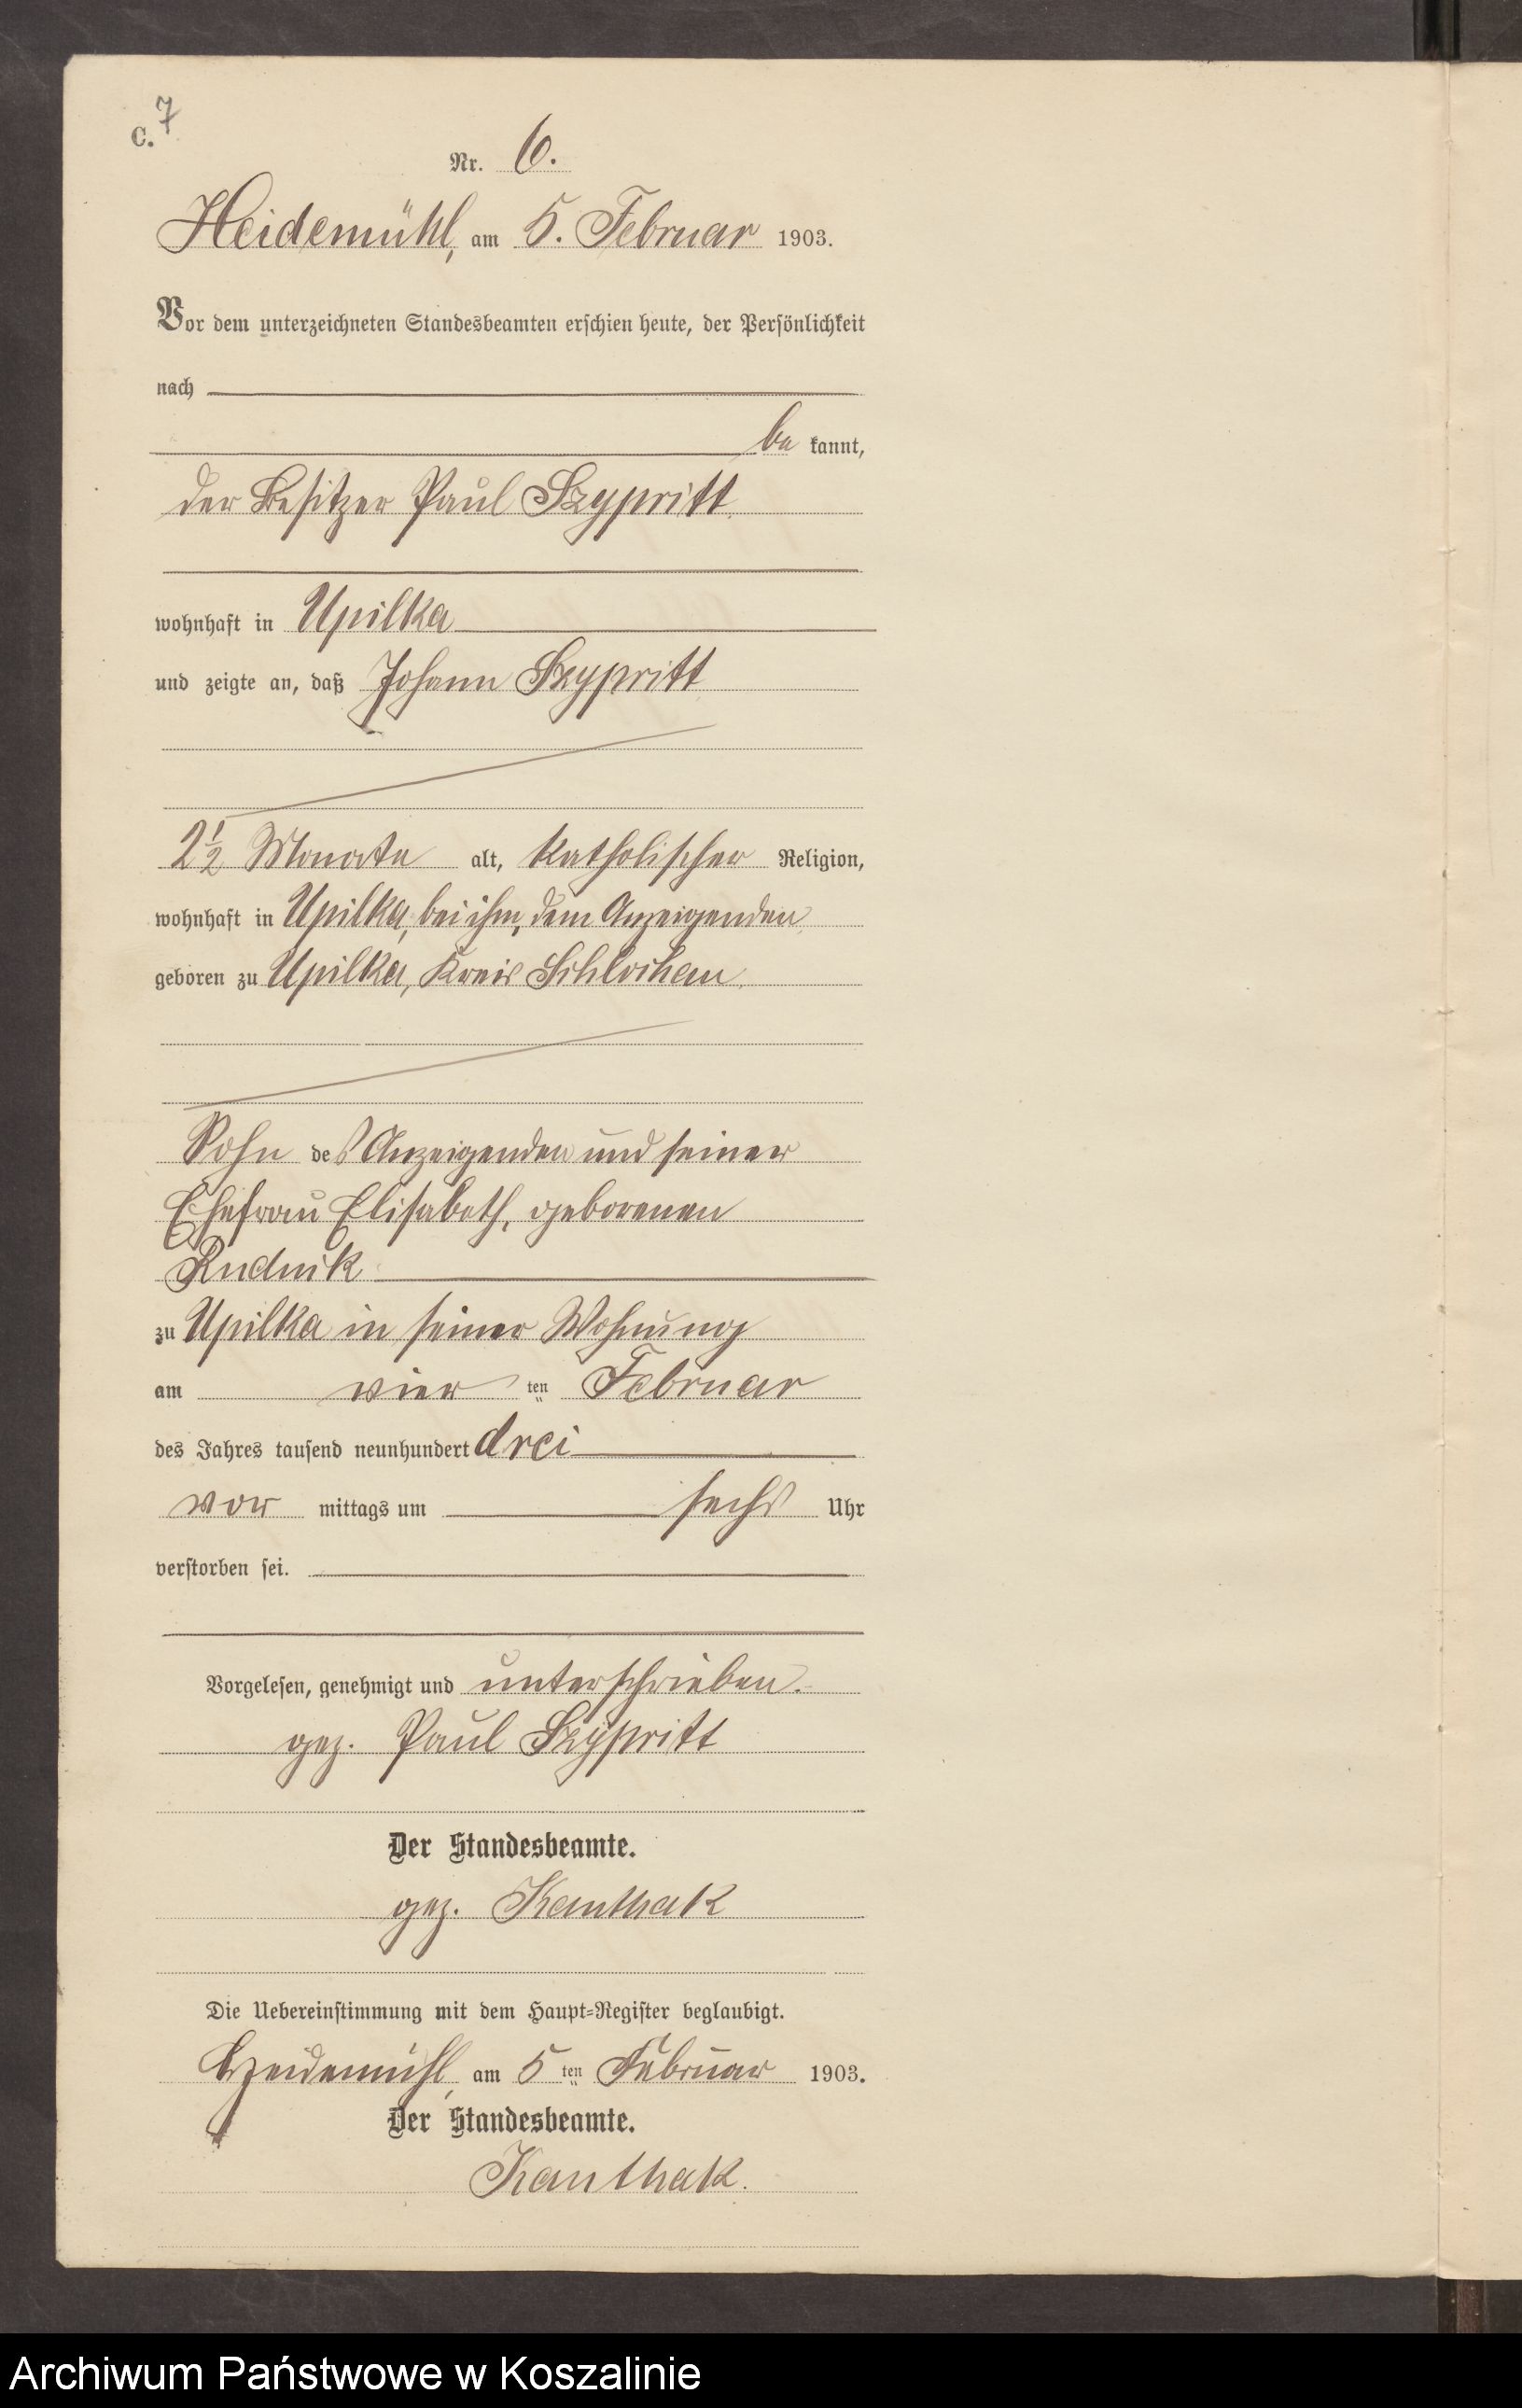 C. 7
Nr. 6.
Heidemühl, am 5. Februar 1903.
Vor dem unterzeichneten Standesbeamten erschien heute, der Persönlichkeit
nach
be kannt,
der Besitzer Paul Szypritt
wohnhaft in Upilka
und zeigte an, daß Johann Szypritt
2 1/2 Monate alt, katholischer Religion,
wohnhaft in Upilka, bei ihm, dem Anzeigenden
geboren zu Upilka, Kreis Schlochau.
Sohn des Anzeigenden und seiner
Ehefrau Elisabeth, geborenen
Rudnik
zu Upilka in seiner Wohnung
am vier ten Februar
des Jahres tausend neunhundert drei
vor mittags um sechs Uhr
verstorben sei.
Vorgelesen, genehmigt und unterschrieben.
gez. Paul Szypritt
Der Standesbeamte.
gez. Kanthak
Die Uebereinstimmung mit dem Haupt-Register beglaubigt.
Heidemühl, am 5 ten Februar 1903.
Der Standesbeamte.
Kanthak.
Archiwum Państwowe w Koszalinie